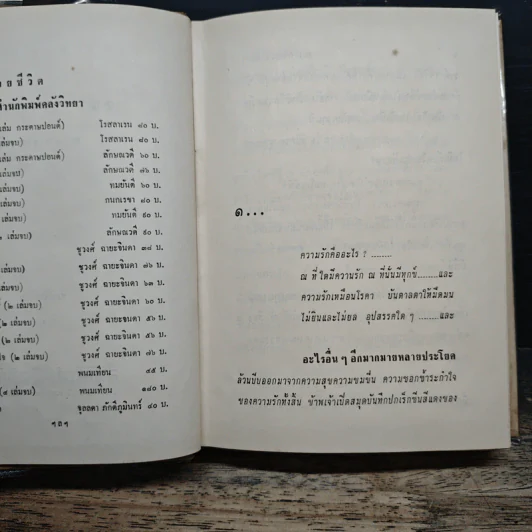 ยชีวิต
สำนักพิมพ์คลังวิทยา
เล่ม กระดาษปอนด์) โรสลาเรน ๘๐ บ.
เล่มจบ) โรสลาเรน ๘๐ บ.
เล่ม กระดาษปอนด์) ลักษณวดี ๖๐ บ.
เล่มจบ) ลักษณวดี ๗๖ บ.
เล่มจบ) ทมยันตี ๖๐ บ.
เล่มจบ) กนกเรขา ๘๐ บ.
เล่มจบ) ทมยันตี ๙๐ บ.
เล่มจบ) ลักษณวดี ๙๐ บ.
ชูวงศ์ ฉายะจินดา ๓๘ บ.
เล่มจบ) ชูวงศ์ ฉายะจินดา ๗๖ บ.
เล่มจบ) ชูวงศ์ ฉายะจินดา ๖๓ บ.
(๒ เล่มจบ) ชูวงศ์ ฉายะจินดา ๖๐ บ.
เล่มจบ) ชูวงศ์ ฉายะจินดา ๕๖ บ.
(๒ เล่มจบ) ชูวงศ์ ฉายะจินดา ๗๖ บ.
พนมเทียน ๔๕ บ.
เล่มจบ) พนมเทียน ๑๘๐ บ.
จุลลดา ภักดีภูมินทร์ ๔๐ บ.
ฯลฯ
๑...
ความรักคืออะไร ? ........
ณ ที่ใดมีความรัก ณ ที่นั้นมีทุกข์........และ
ความรักเหมือนโรคา บันดาลตาให้มืดมน
ไม่ยินและไม่ยล อุปสรรคใด ๆ ......และ
อะไรอื่น ๆ อีกมากมายหลายประโยค
ล้วนบีบออกมาจากความสุขความขมขื่น ความชอกช้ำระกำใจ
ของความรักทั้งสิ้น ข้าพเจ้าเปิดสมุดบันทึกปกเร็กซีนสีแดงของ